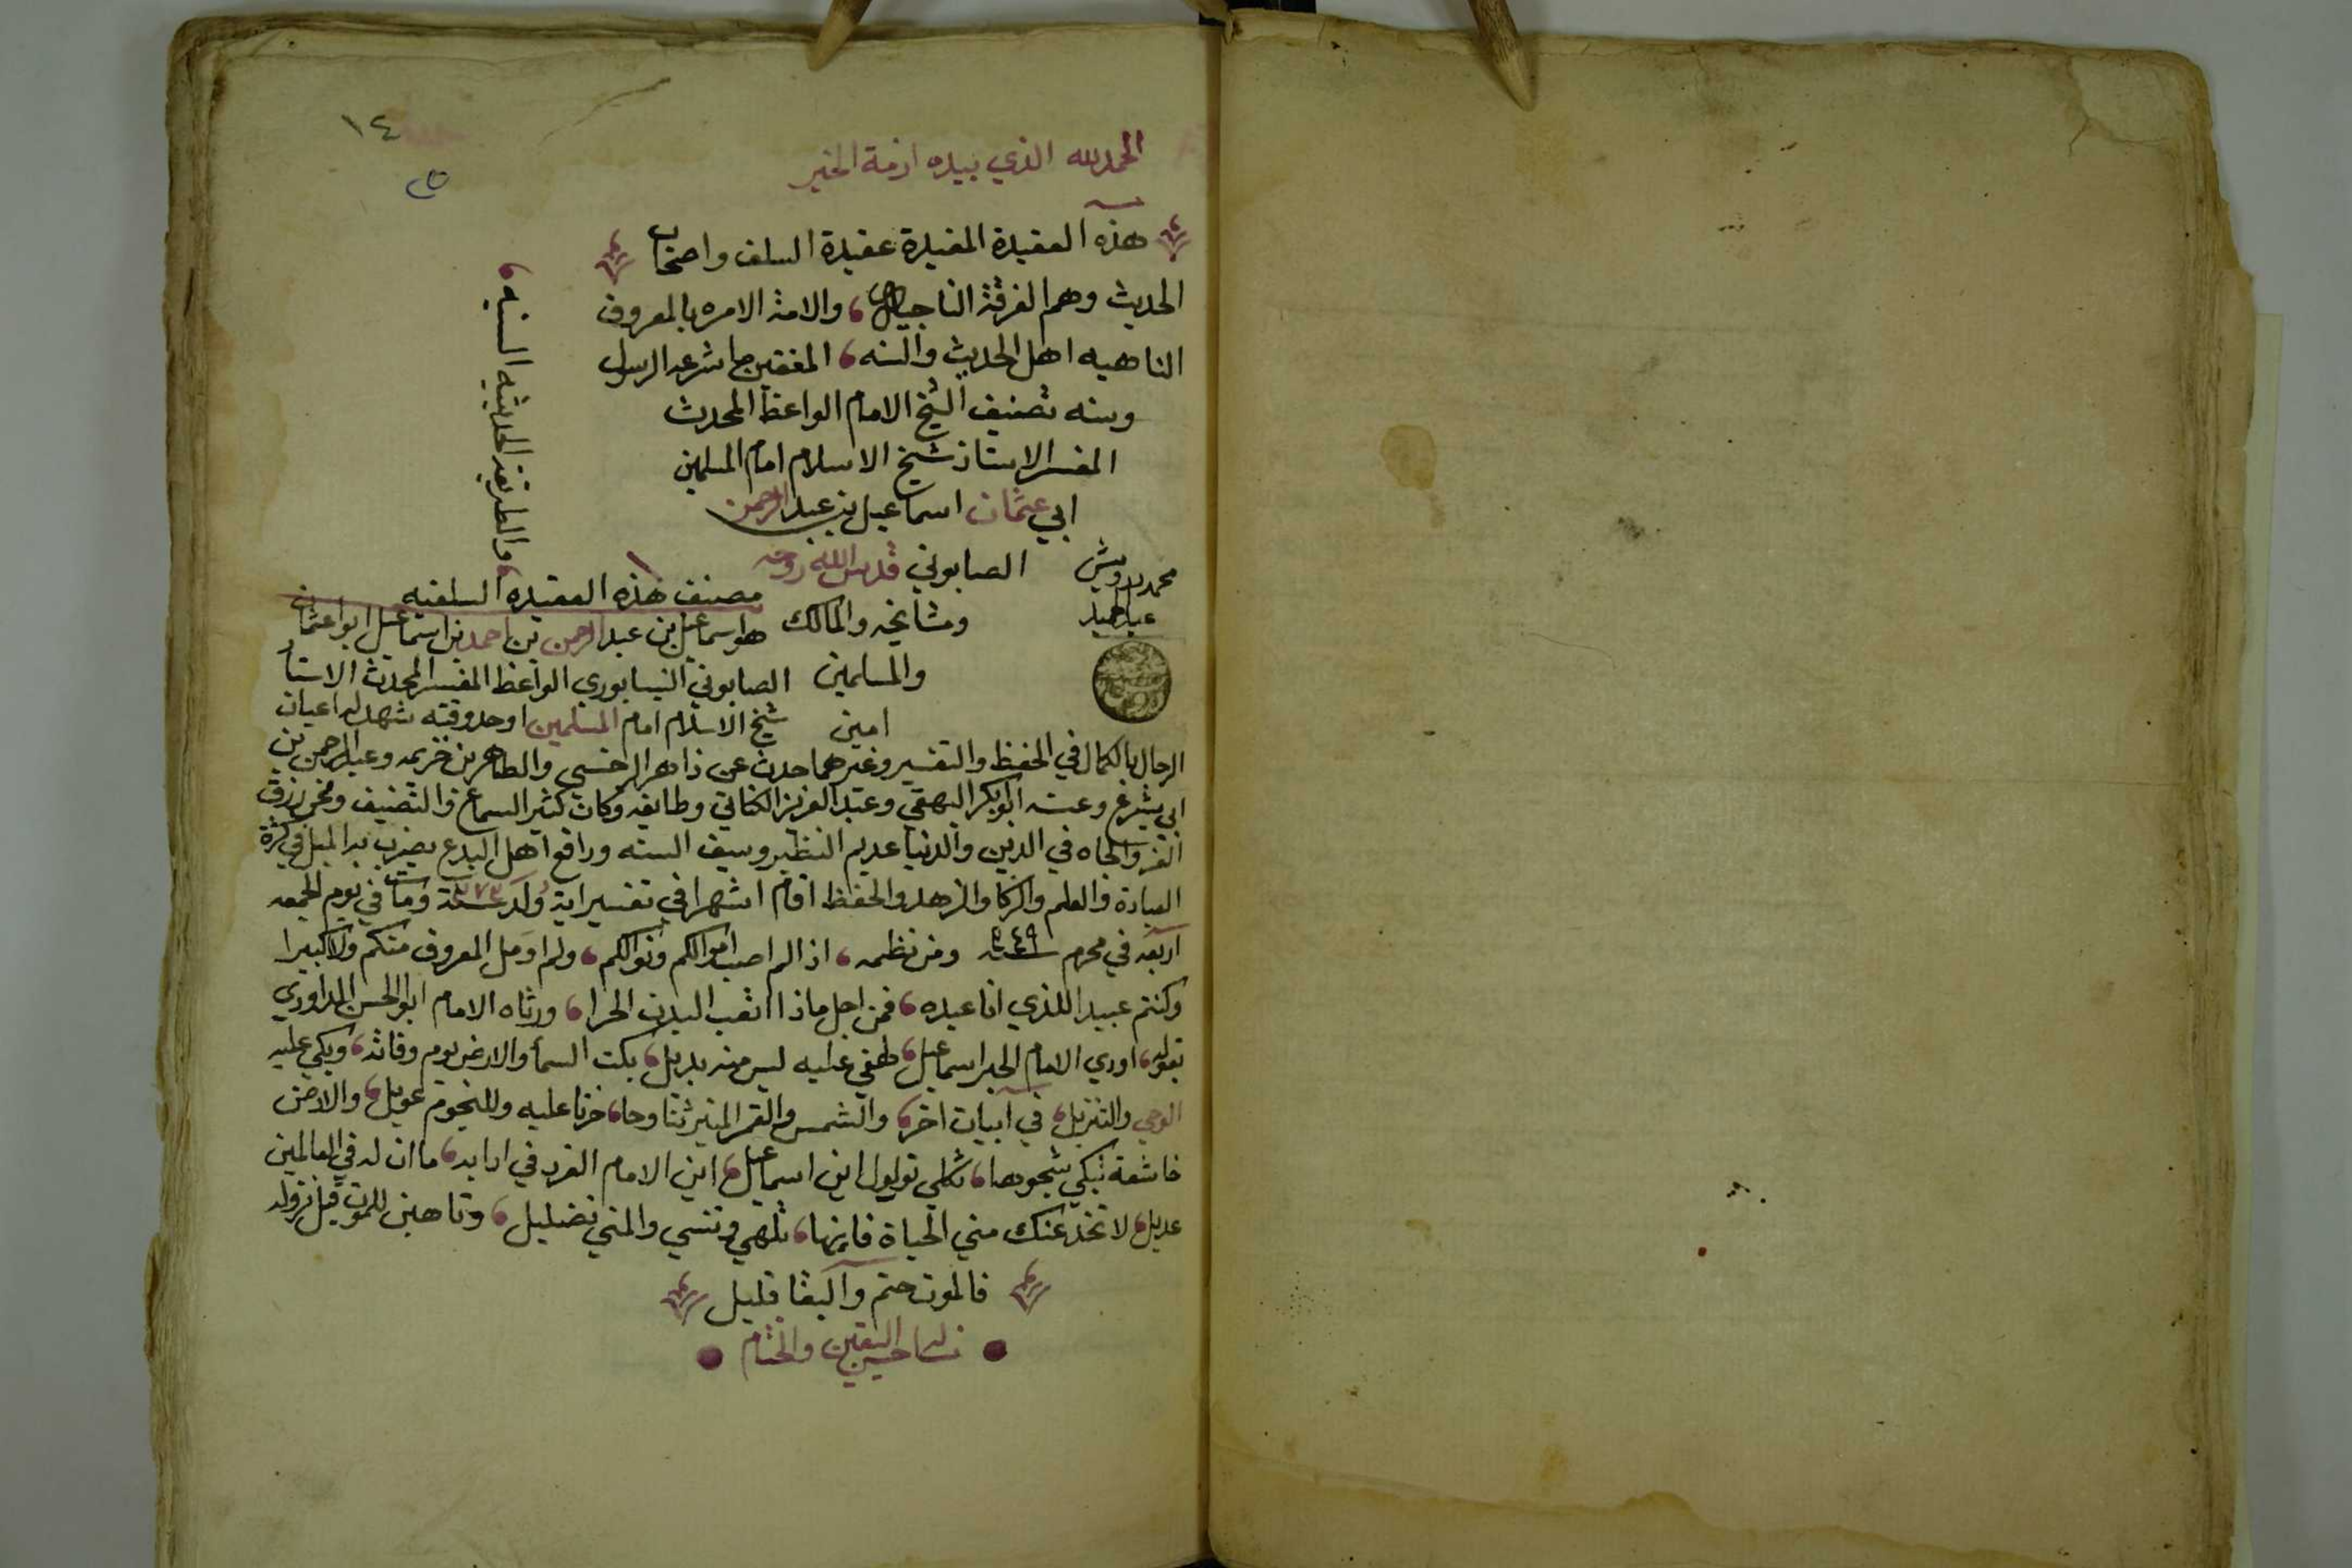 ١٤
الحمد لله الذي بيده ازمة الخير
هذه العقيدة المفيدة عقيدة السلف واصحاب
الحديث وهم الفرقة الناجية، والامة الامره بالمعروف
الناهيه اهل الحديث والسنه، المقتفين ما شرعه الرسول
وسنه تصنيف الشيخ الامام الواعظ المحدث
المفسر الاستاذ شيخ الاسلام امام المسلمين
ابي عثمان اسماعيل بن عبد الرحمن
الصابوني قدس الله روحه
ومشايخه والمالك
والمسلمين
امين
والطريقة الحديثيه السنيه،
محمد درويش
عبد الحميد
مصنف هذه العقيده السلفيه
هو اسماعيل بن عبد الرحمن بن احمد بن اسماعيل ابو اعثمان
الصابوني النيسابوري الواعظ المفسر المحدث الاستاذ
شيخ الاسلام امام المسلمين اوحد وقته شهد له اعيان
الرجال بالكمال في الحفظ والتفسير وغيرهما حدث عن زاهر السرخسي والطاهر بن خزيمه وعبد الرحمن بن
ابي شريح وعنه ابو بكر البهقي وعبد العزيز الكتاني وطايفه وكان كثير السماع والتصنيف وممن رزق
العز والجاه في الدين والدنيا عديم النظير وسيف السنه ودافع اهل البدع يضرب به المثل في كثرة
العبادة والعلم والذكا والزهد والحفظ اقام اشهرا في تفسير اية ولد سنة ٣٧٣ ومات في يوم الجمعه
اربعه في محرم سنة ٤٤٩ ومن نظمه، اذا لم اصب اموالكم ونوالكم، ولم اومل المعروف منكم ولا كبيرا
وكنتم عبيدا للذي انا عبده، فمن اجل ماذا اتعب البدن الحرا، ورثاه الامام ابو الحسن الداوودي
بقوله، اودي الامام الحبر اسماعيل، لهفي عليه ليس منه بديل، بكت السماْ والارض يوم وفاته، وبكي عليه
الوحي والتنزيل، في ابيات اخر، والشمس والقمر المنير تناوحا، حزنا عليه وللنجوم عويل، والارض
خاشعة تبكي شجوها، تكلي تولول اين اسماعيل، اين الامام الفرد في ادابه، ما ان له في العالمين
عديل، لا تخدعنك مني الحياة فانها، تلهي وتنسي والمني تضليل، وتاهبن للموت قبل نزوله
فالموت حتم والبقا قليل
نساله حسن اليقين والختام